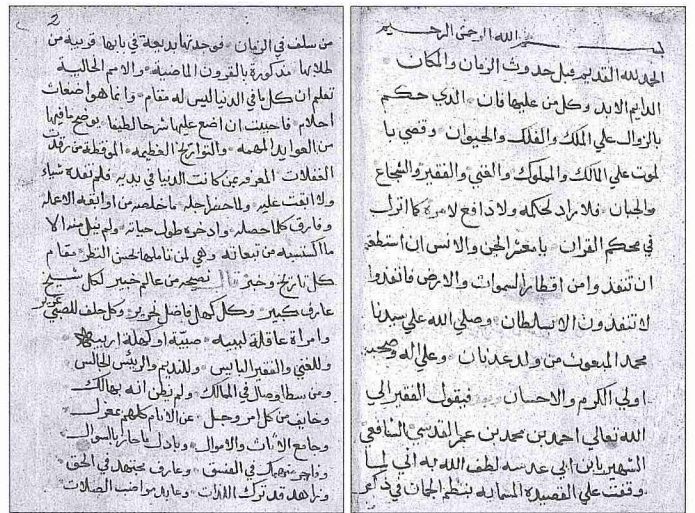 بسم الله الرحمن الرحيم
الحمد لله القديم قبل حدوث الزمان والمكان
الدايم الابد وكل من عليها فان الذي حكم
بالزوال علي الملك والفلك والحيوان وقضي با
لموت علي المالك والمملوك والغني والفقير والشجاع
والجبان فلا راد لحكمه ولا دافع لامره كما انزل
في محكم القران يا معشر الجن والانس ان استطعتم
ان تنفذوا من اقطار السموات والارض فانفذوا
لا تنفذون الا بسلطان وصلي الله علي سيدنا
محمد المبعوث من ولد عدنان وعلي اله وصحبه
اولي الكرم والاحسان وبعد فيقول الفقير الي
الله تعالي احمد بن محمد بن عمر القدسي الشافعي
الشهير بابن ابي عدسه لطف الله به اني لما
وقفت علي القصيدة المسماه بنظم الجمان في ذكر
2
من سلف في الزمان فوجدتها بديعة في بابها قريبة من
طلابها مذكورة بالقرون الماضية والامم الخالية
تعلم ان كل ما في الدنيا ليس له مقام وانما هو اضغاث
احلام فاحببت ان اضع عليها شرحا لطيفا يوضح ما فيها
من الفوايد المهمه والتواريخ العظيمه الموقظة من رقدت
الغفلات المعرفه عن كانت الدنيا في يديه فلم تفده شياء
ولا ابقت عليه ولما حضر اجله ما خلصه من اوابقه الاعمله
وفارق كلما حصله وادخره طول حياته ولم ينل منه الا
ما اكتسبه من تبعاته وهي لمن تاملها بحسن النظر مقام
كل تاريخ وخبر نصيحة من عالم خبير لكل شيخ
عارف كبير وكل كهل فاضل نحرير وكل خلف للصبي غرير
وامراة عاقلة لبيبه صبية او كهلة اريبه
وللغني والفقير البايس وللنديم والريس الجالس
ومن سطا وصال في الممالك ولم يظن انه بهالك
وخايف من كل امر وجل عن الانام كلهم بمعزل
وجامع الاثاث والاموال وباذل ما حاز بالسوال
وفاجر منهمك في الفسق وعارف مجتهد في الحق
وزاهد قد ترك اللذات وعابد مواضب الصلات